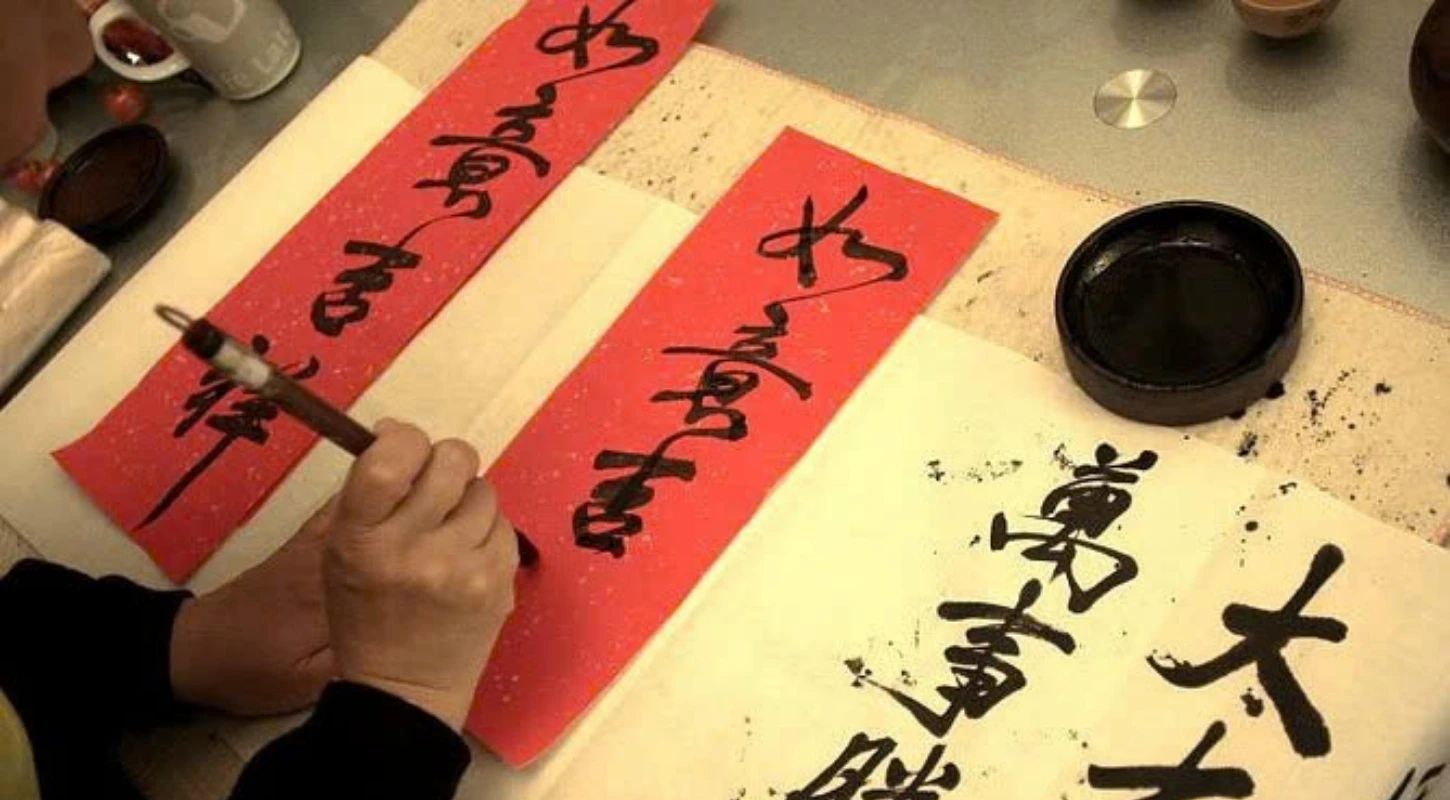 如意吉祥
如意吉
大
萬事勝